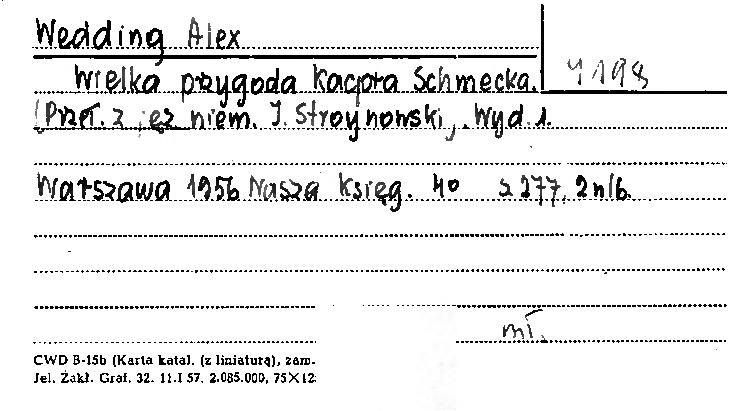 Wedding Alex
Wielka przygoda Kacpra Schmecka.
4198
(Przeł. z jęz niem. J. Stroynowski, . Wyd. 1.
Warszawa 1956 Nasza Księg. 4° s 277, 2 nlb.
mł.
CWD B-15b (Karta katal. (z liniaturą), zam.
Jel. Zakł. Graf. 32. 11.I 57. 2.085.000, 75×12